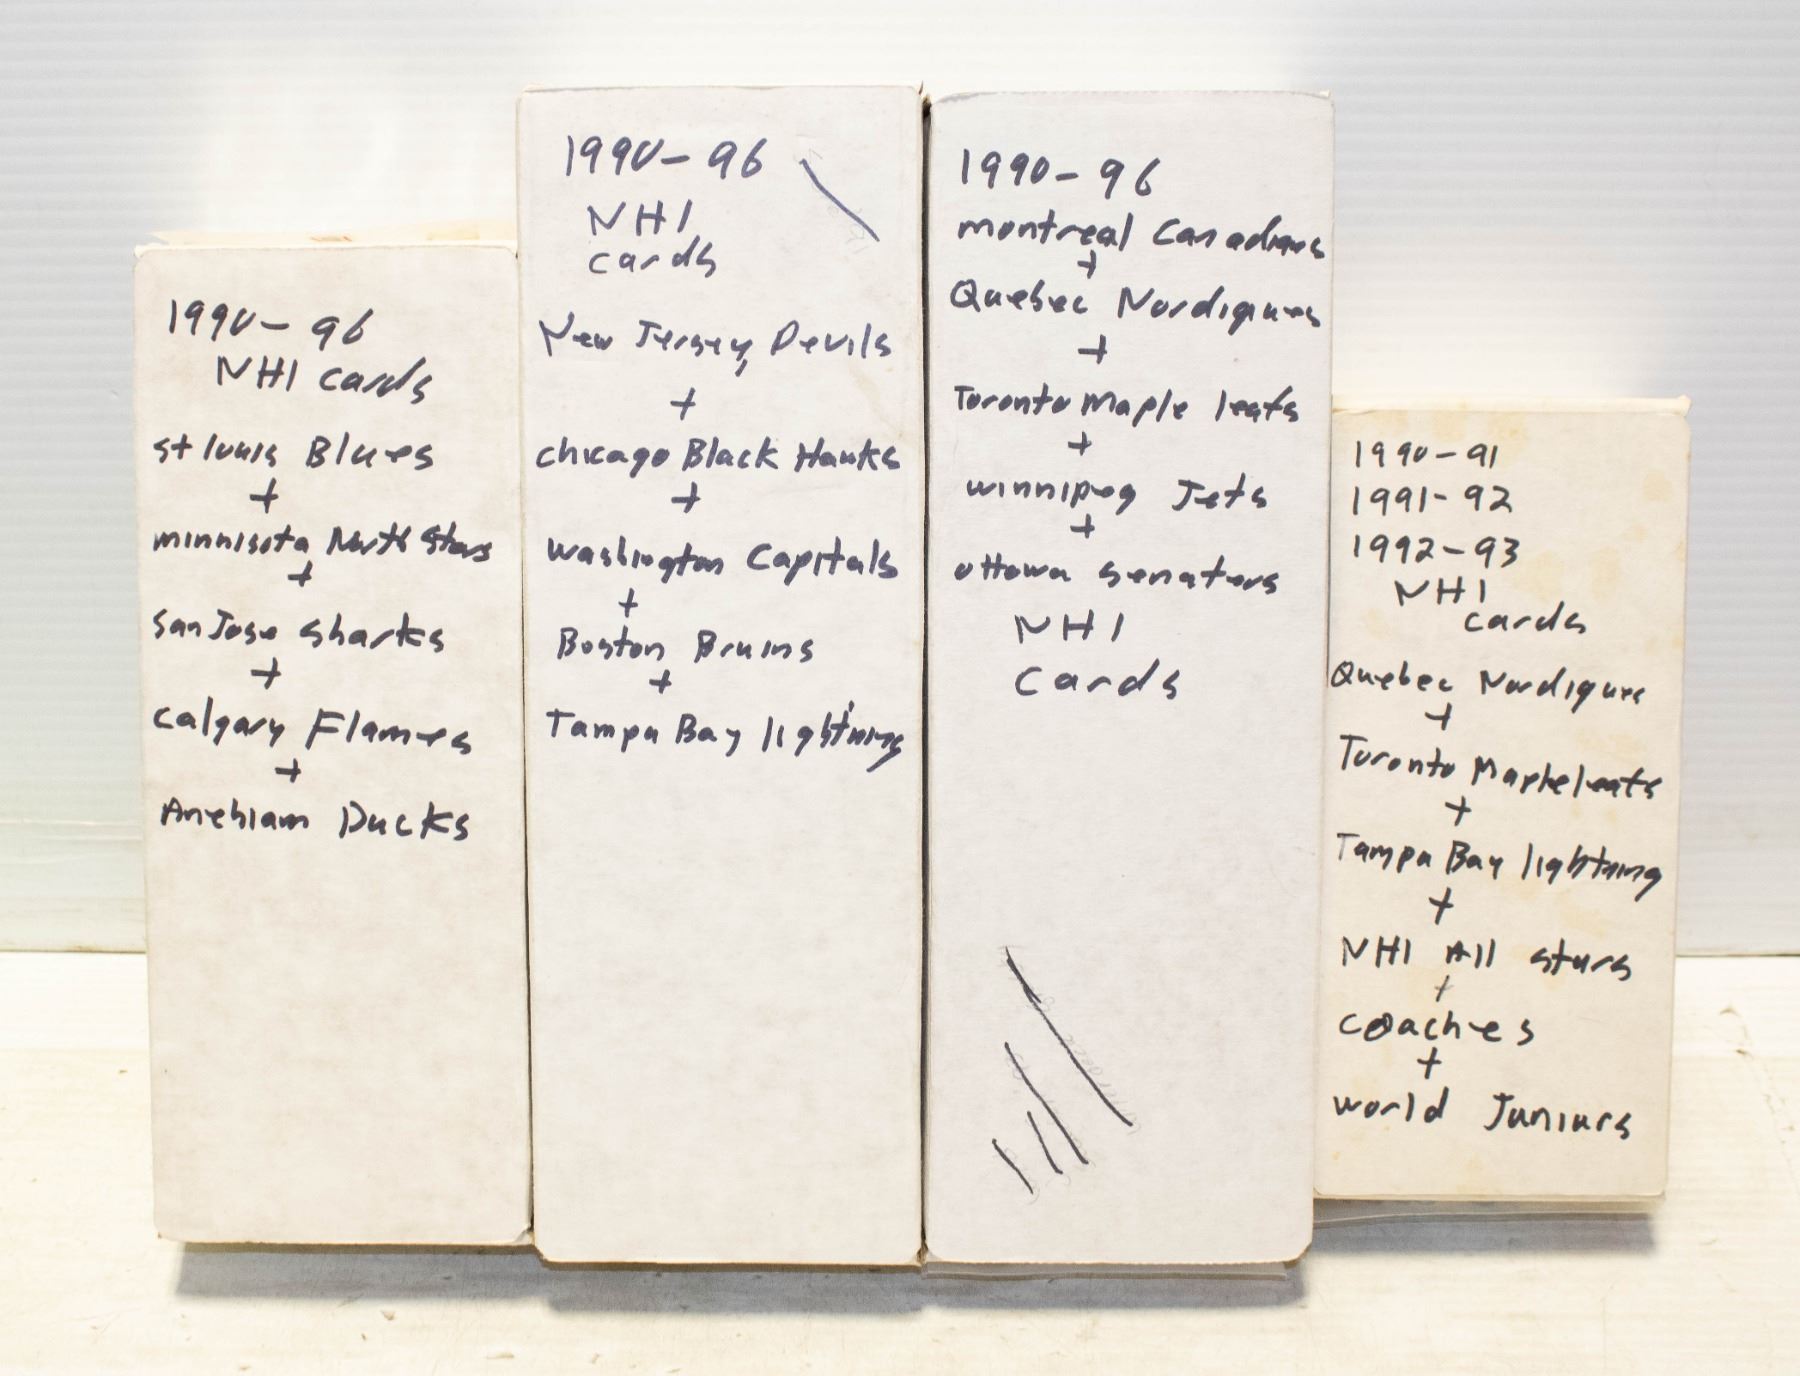 1990-96
NHl cards
st louis Blues
+
minnisota North Stars
+
San Jose sharks
+
Calgary Flames
+
Anehiam Ducks
1990-96
NHl
cards
New Jersey, Devils
+
chicago Black Hawks
+
washington Capitals
+
Boston Bruins
+
Tampa Bay lightning
1990-96
montreal Canadiens
+
Quebec Nordiques
+
Toronto Maple leafs
+
winnipeg Jets
+
ottowa senators
NHl
Cards
1990-91
1991-92
1992-93
NHl
cards
Quebec Nordiques
+
Toronto Mapleleafs
+
Tampa Bay lightning
+
NHl All stars
+
coaches
+
world Juniors